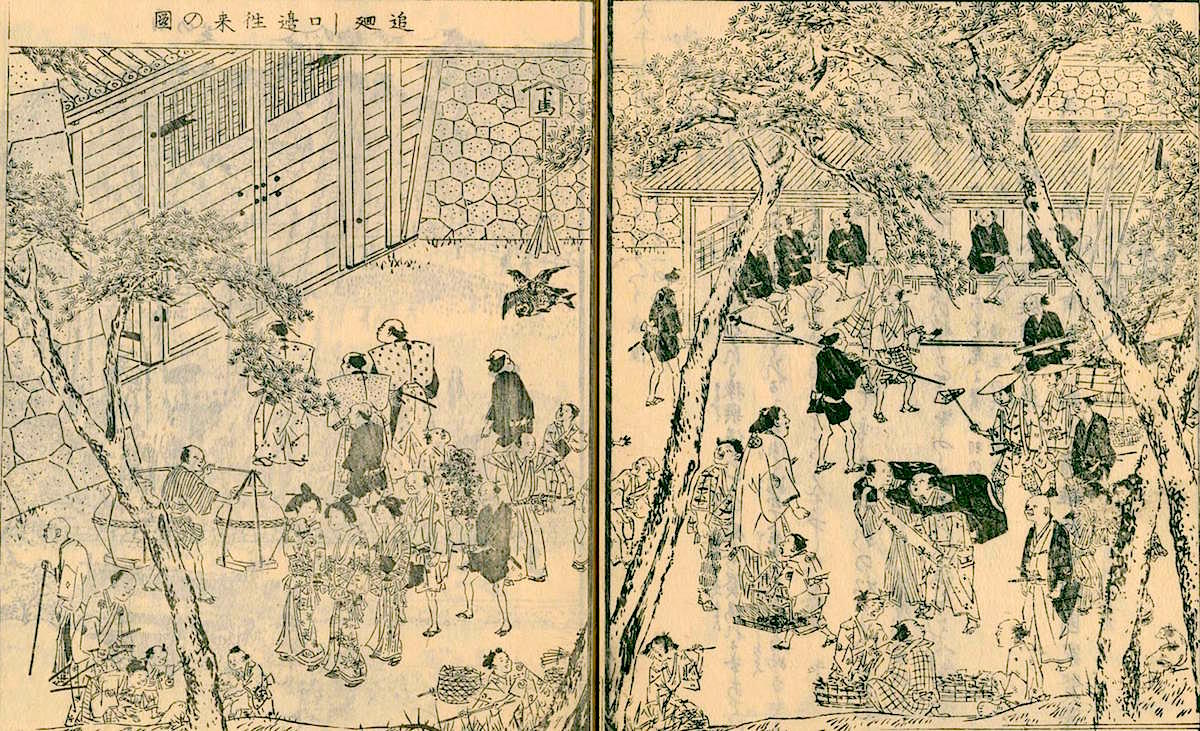 追廻し口邊徃来の圖
下馬